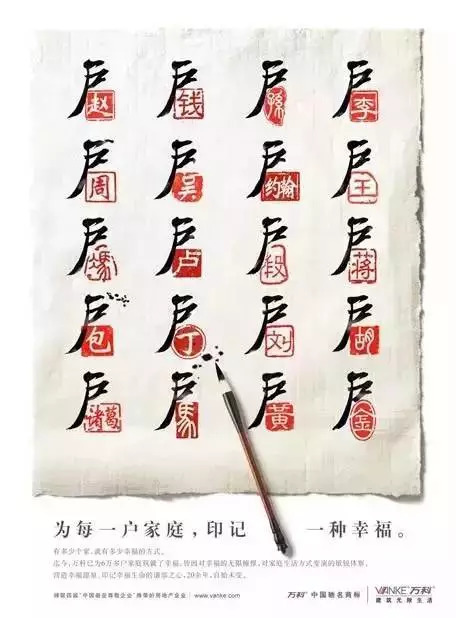 户赵 户钱 户孫 户李
户周 户吴 户约翰 户王
户馮 户卢 户段 户蒋
户包 户丁 户刘 户胡
户诸葛 户馬 户黃 户金
为每一户家庭，印记 一种幸福。
有多少个家，就有多少幸福的方式。
迄今，万科已为6万多户家庭筑就了幸福，皆因对幸福的无限憧憬，对家庭生活方式变演的敏锐体察。
营造幸福源泉，印记幸福生命的谦恭之心，20余年，自始未变。
蝉联四届“中国最受尊敬企业”殊荣的房地产业 www.vanke.com 万科 中国驰名商标 VANKE 万科
建筑无限生活